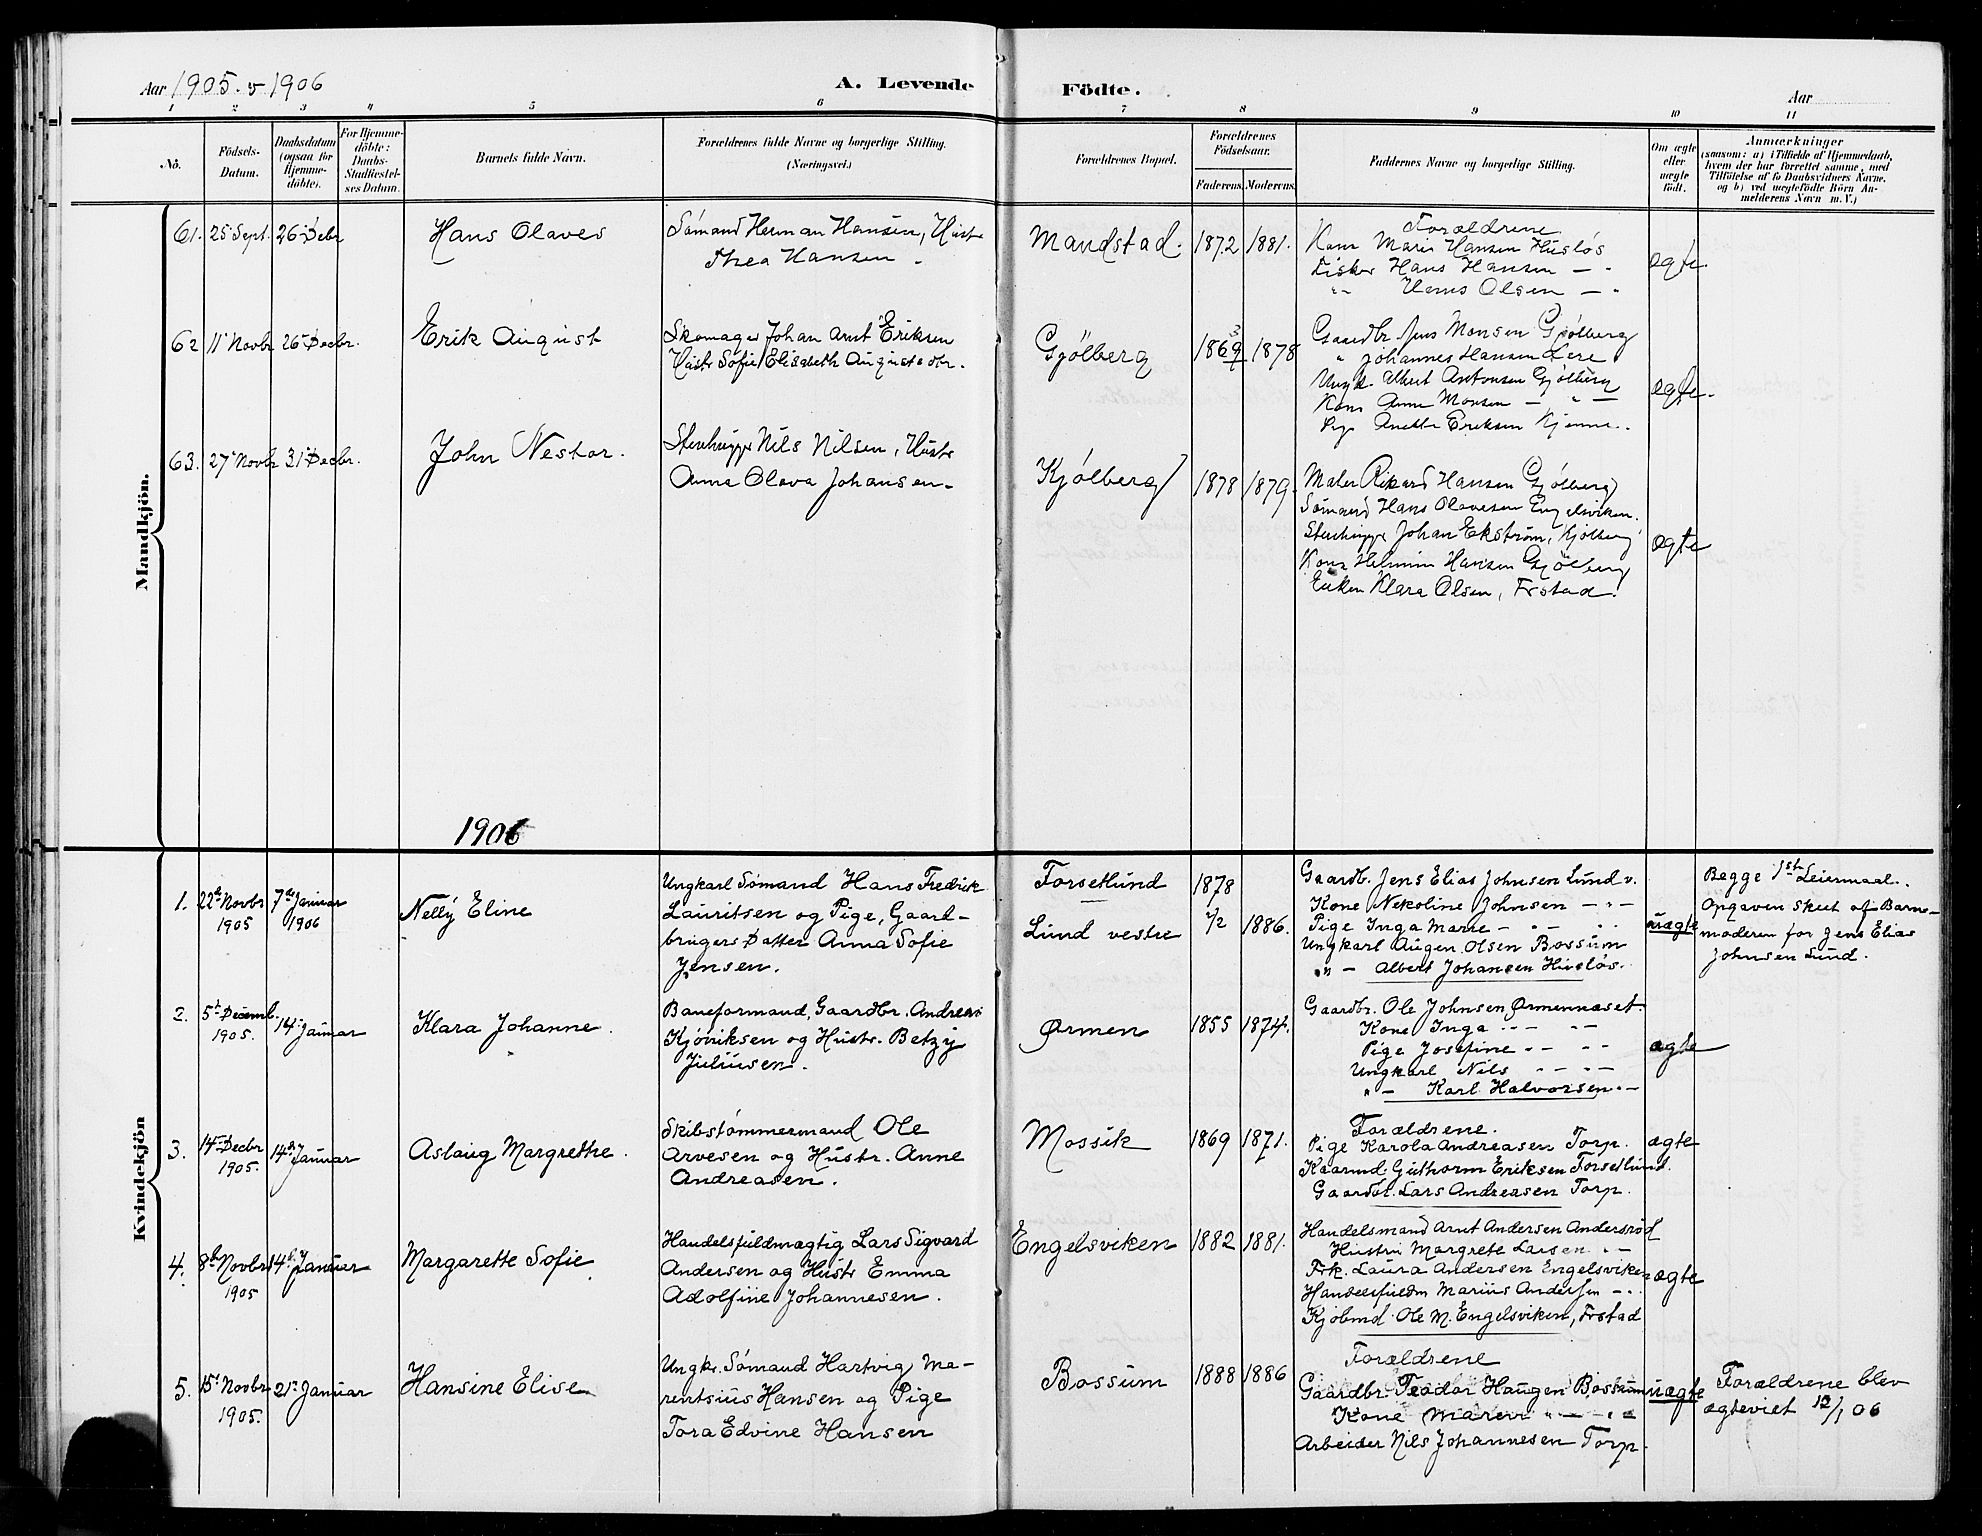 Aar 1905 & 1906
A. Levende Födte.
Aar
1 2 3 4 5 6 7 8 9 10 11
No.
Födsels-Datum.
Daabsdatum (ogsaa for Hjemmedöbte).
For Hjemmedöbte: Daabs-Stadfæstelses Datum.
Barnets fulde Navn.
Forældrenes fulde Navne og borgerlige Stilling. (Næringsvei.)
Forældrenes Bopæl.
Forældrenes Födselsaar.
Faderens. Moderens.
Faddernes Navne og borgerlige Stilling.
Om ægte eller uægte födt.
Anmærkninger
(saasom: a) i Tilfælde af Hjemmedaab, hvem der har forrettet samme, med Tilföielse af to Daabsvidners Navne, og b) ved uægtefödte Börn Anmelderens Navn m. V.)
Mandkjön.
61. 25 Sept. 26 Debr
Hans Olaves
Sømand Herman Hansen, Hustr
Thea Hansen.
Mandstad. 1872 1881.
Forældrene
Kone Marie Hansen Husløs
Fisker Hans Hansen — "
" Hans Olsen — "
ægte.
62 11 Novbr 26 Decbr.
Erik August
Skomager Johan Arnt Eriksen
Hustr Sofie Elisabeth Augustsdtr.
Gjølberg 1869 3/9 1878
Gaardbr Jens Monsen Gjølberg
" Johannes Hansen Lere
Ungk. Albert Antonsen Gjølberg
Kone Anne Monsen — " —
Pige Anette Eriksen Kjenne.
ægte.
63. 27 Novbr 31 Decbr.
John Nestor.
Stenhugger Nils Nilsen, Hustr
Anna Olava Johansen.
Kjølberg 1878 1879.
Maler Rikard Hansen Gjølberg
Sømand Hans Olavesen Engelsviken.
Stenhugger Johan Ekstrøm, Kjølberg
Kone Helmine Hansen Gjølberg
Enken Klara Olsen, Frstad.
ægte
1906
Kvindekjön
1. 22de Novbr 1905 7de Januar 1906
Nelly Eline
Ungkarl Sømand Hans Fredrik
Lauritsen og Pige, Gaard-
brugers Datter Anna Sofie
Jensen.
Forsetlund
Lund vestre
1878 1/2 1886.
Gaardb. Jens Elias Johnsen Lund v.
Kone Nekoline Johnsen — " —
Pige Inga Marie — " — " "
Ungkarl Augen Olsen Bossum
" — Albert Johansen Husløs.
uægte
Begge 1st Leiermaal.
Opgaven skeet af Barne-
moderen for Jens Elias
Johnsen Lund.
2. 5t Decemb. 1905. 14 Januar
Klara Johanne.
Baneformand, Gaardbr. Andreas
Kjøniksen og Hustr. Betzy
Juliusen.
Ørmen 1855 1874.
Gaardbr. Ole Johnsen Ørmennæset.
Kone Inga " — " —
Pige Josefine " — " —
Ungkarl Nils " — " —
" — Karl Halvorsen " —
ægte
3. 14 Decbr 1905. 14de Januar
Aslaug Margrethe.
Skibstømmermand Ole
Arvesen og Hustr. Anne
Andreasen.
Mossik 1869 1871.
Forældrene.
Pige Karola Andreasen Torp.
Kaarmd Guthorm Eriksen Forsetlund.
Gaardbr. Lars Andreasen Torp.
ægte
4. 8de Novbr 1905 14de Januar
Margarette Sofie
Handelsfuldmægtig Lars Sigvard
Andersen og Hustr Emma
Adolfine Johannesen.
Engelsviken 1882 1881.
Handelsmand Arnt Andersen Andersrød
Hustru Margrete Larsen " —
Frk. Laura Andersen Engelsviken
Handelsfuldm Marius Andersen — "
Kjøbmd Ole M. Engelsviken, Frstad
ægte
5. 15t Novbr 1905. 21 Januar
Hansine Elise
Ungkr. Sømand Hartvig Ma-
rentsius Hansen og Pige
Tora Edvine Hansen
Bossum 1888 1886
Forældrene
Gaardbr. Teodor Haugen Bossum
Kone Maren " — " —
Arbeider Nils Johannesen Torp.
uægte
Forældrene blev
ægteviet 12/1 06